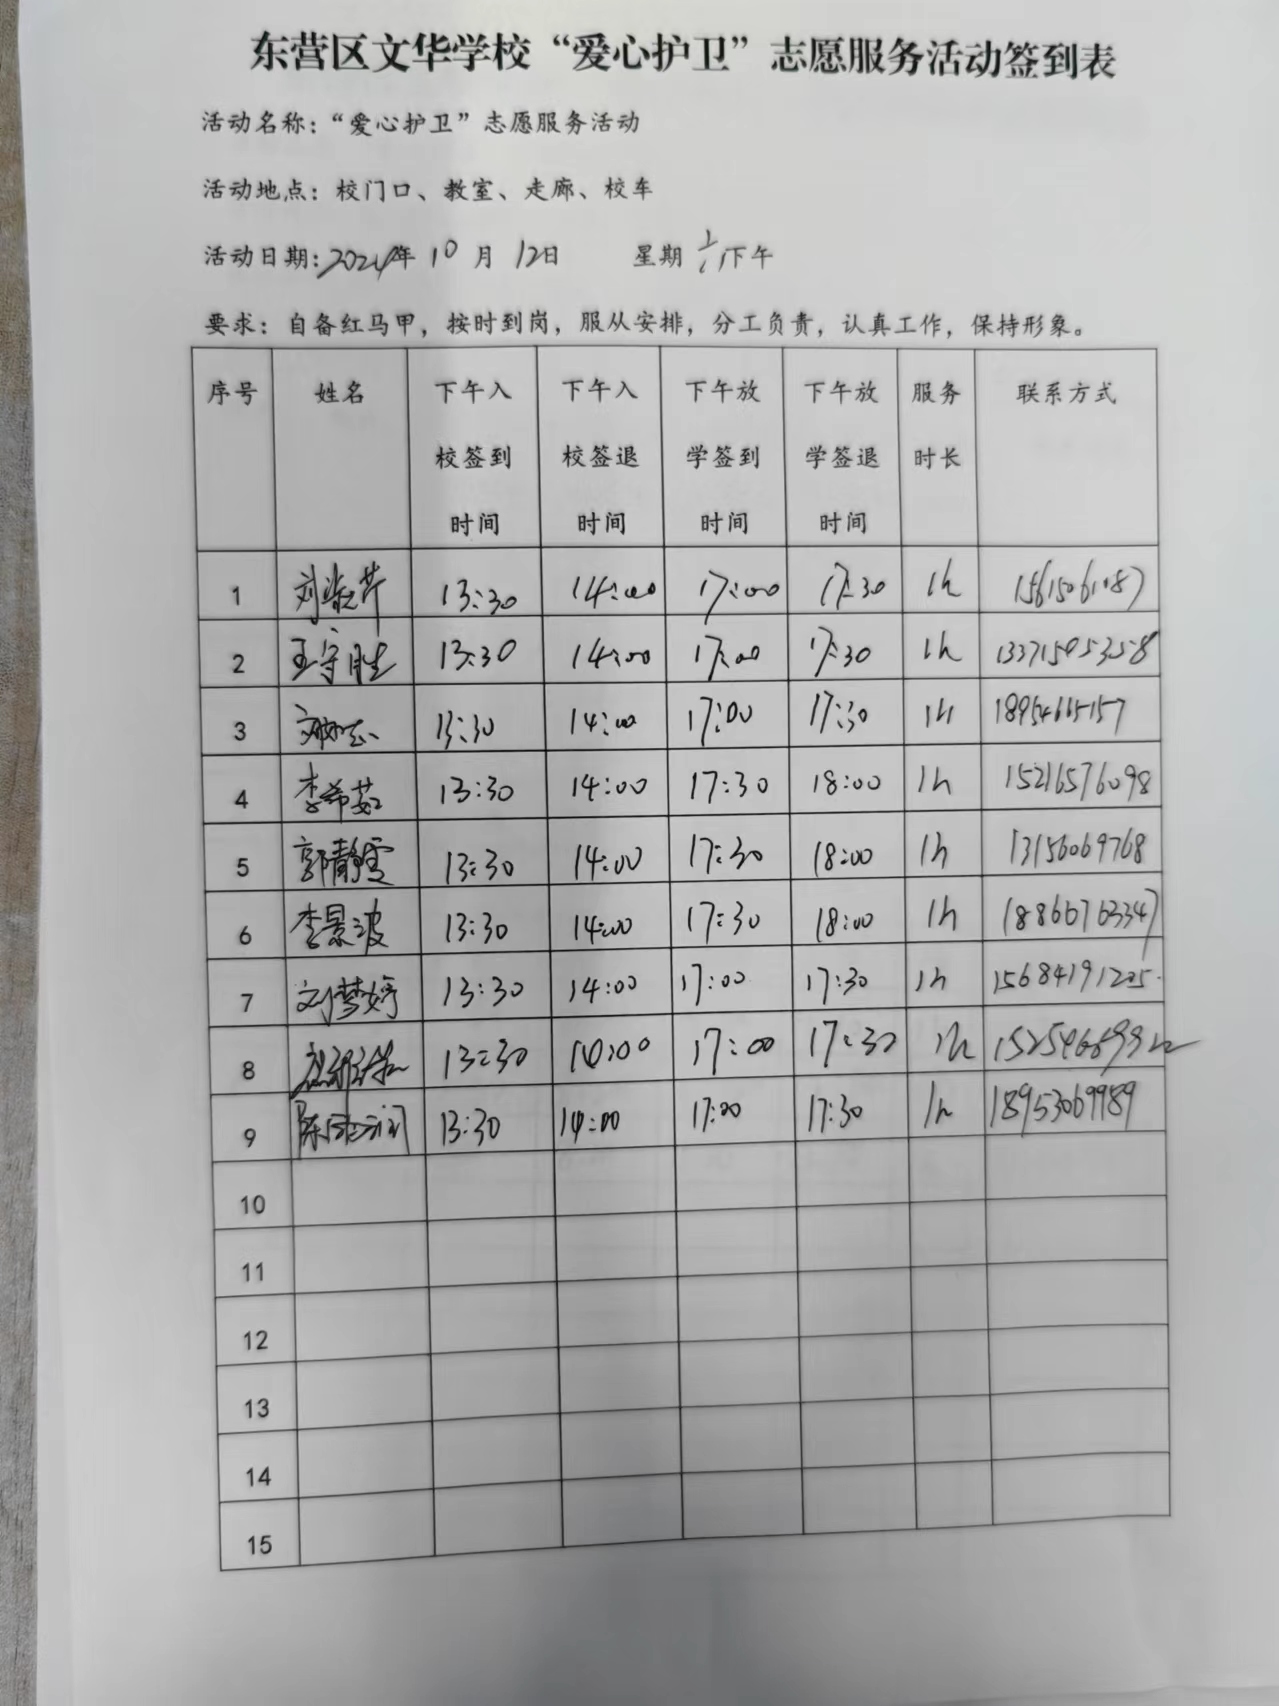 东营区文华学校“爱心护卫”志愿服务活动签到表
活动名称：“爱心护卫”志愿服务活动
活动地点：校门口、教室、走廊、校车
活动日期：2024年 10月 12日 星期六下午
要求：自备红马甲，按时到岗，服从安排，分工负责，认真工作，保持形象。
序号 姓名 下午入校签到时间 下午入校签退时间 下午放学签到时间 下午放学签退时间 服务时长 联系方式
1 刘淑芹 13:30 14:00 17:00 17:30 1h 15615061087
2 王守胜 13:30 14:00 17:00 17:30 1h 13371505358
3 13:30 14:00 17:00 17:30 1h
4 李希茹 13:30 14:00 17:30 18:00 1h 15216576098
5 郭静雯 13:30 14:00 17:30 18:00 1h 13156069768
6 李景波 13:30 14:00 17:30 18:00 1h 18866763347
7 刘梦婷 13:30 14:00 17:00 17:30 1h 15684191225
8 13:30 14:00 17:00 17:30 1h
9 13:30 14:00 17:00 17:30 1h 18953069989
10
11
12
13
14
15